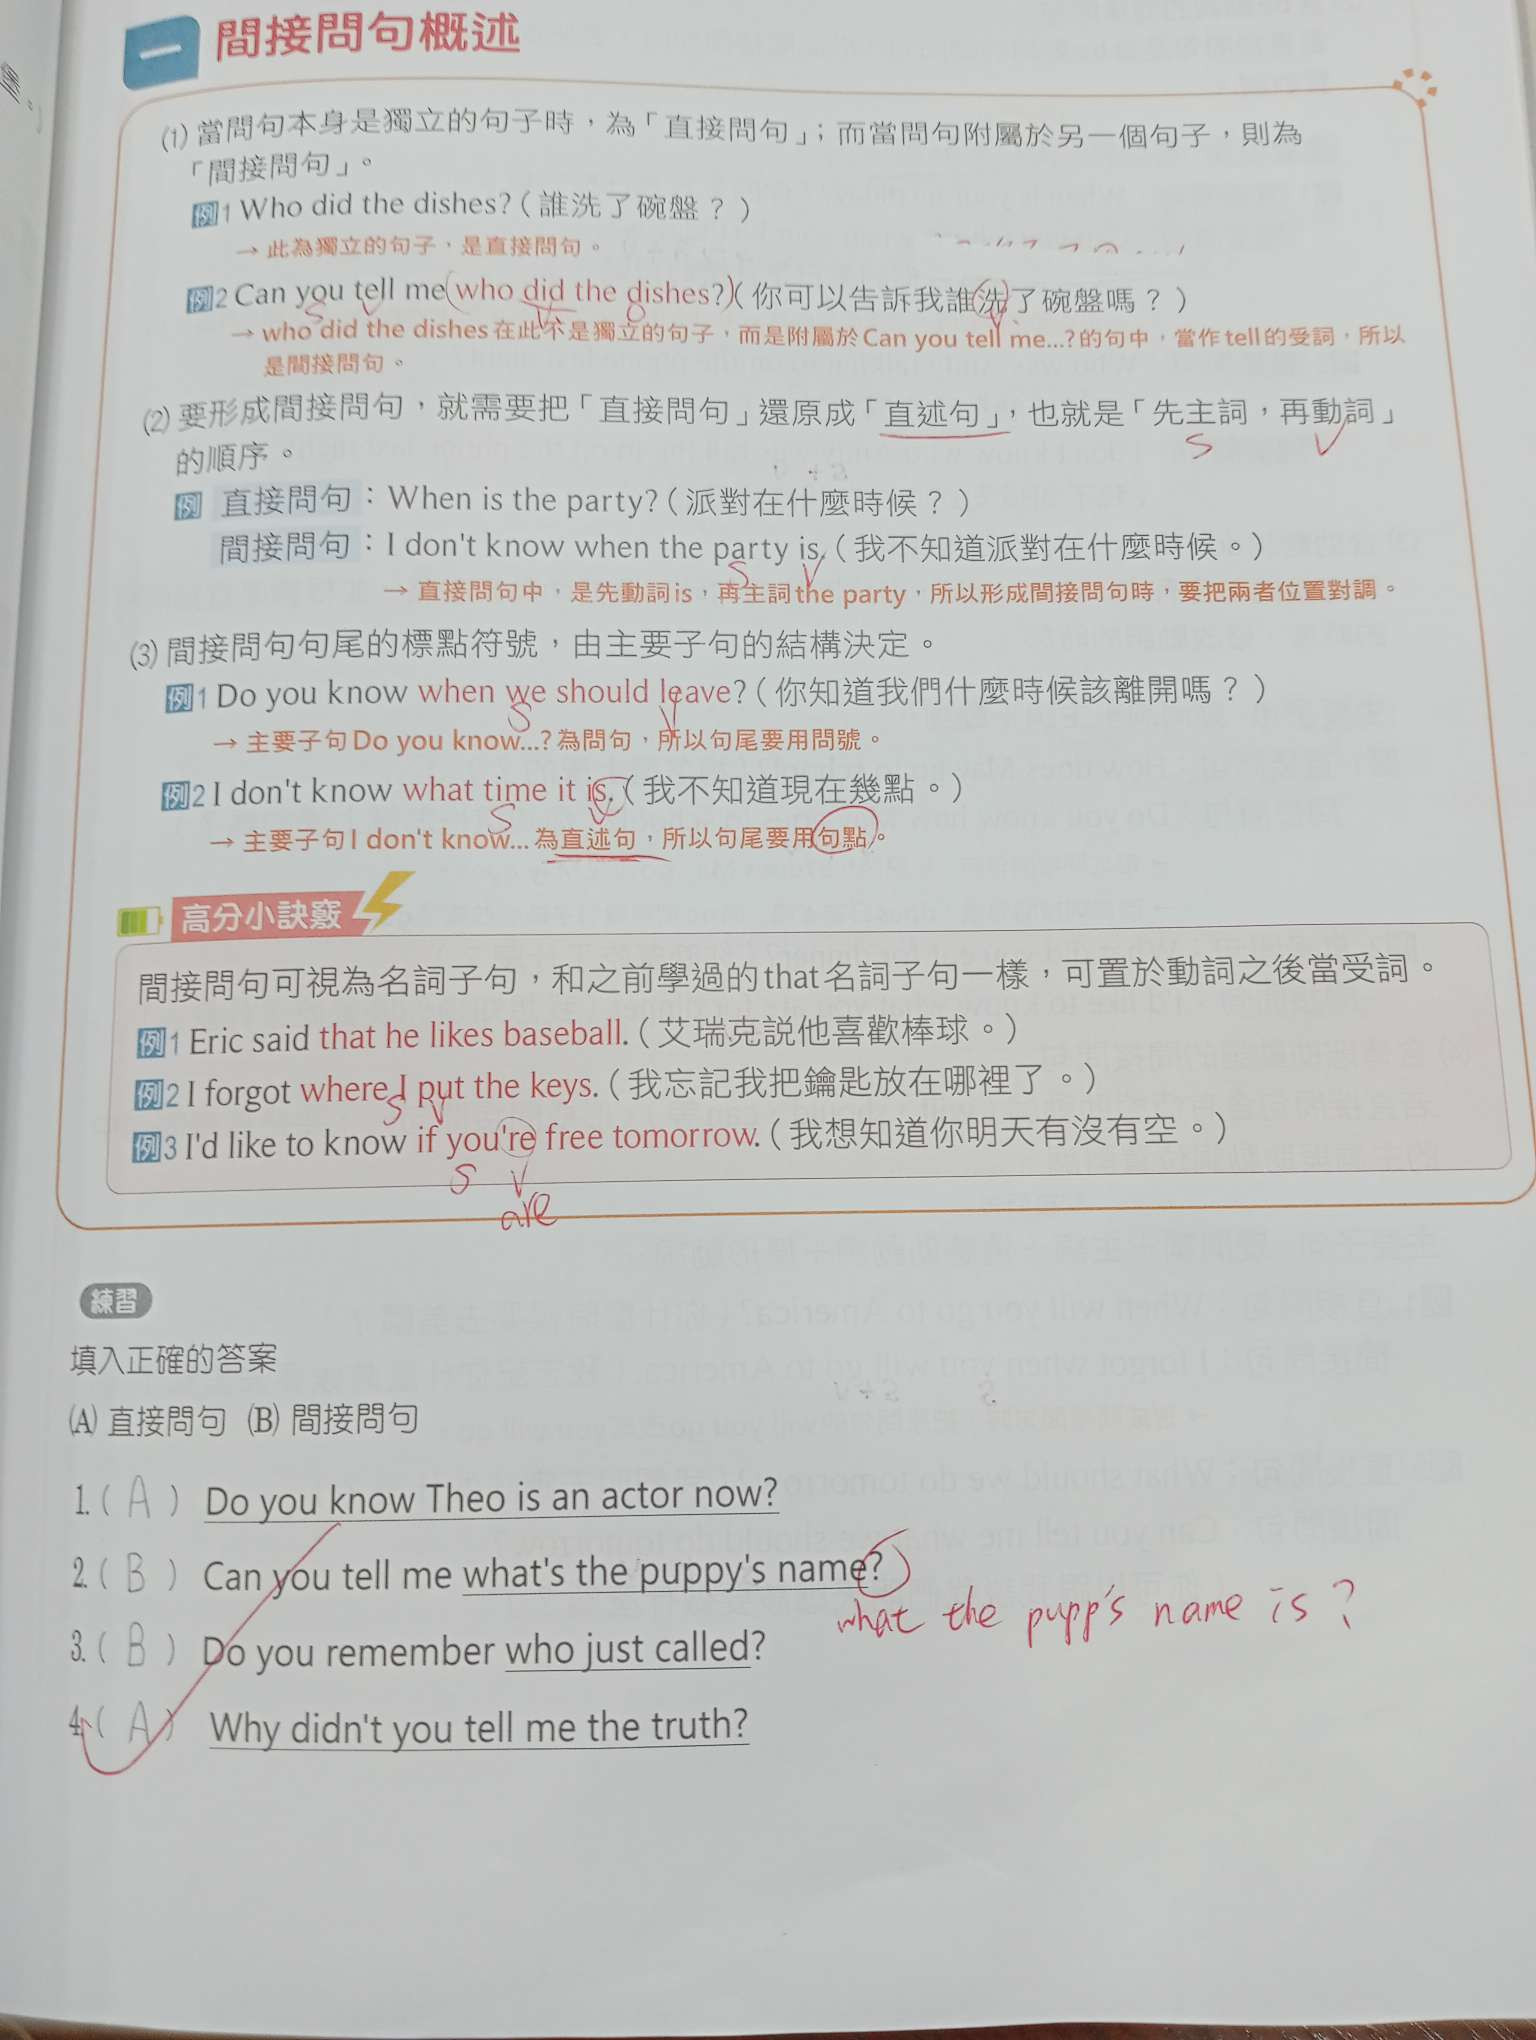 一 間接問句概述
(1) 當問句本身是獨立的句子時，為「直接問句」；而當問句附屬於另一個句子，則為
「間接問句」。
例1 Who did the dishes?（誰洗了碗盤？）
→ 此為獨立的句子，是直接問句。
例2 Can you tell me who did the dishes?（你可以告訴我誰洗了碗盤嗎？）
S V V O V
→ who did the dishes 在此不是獨立的句子，而是附屬於 Can you tell me...? 的句中，當作 tell 的受詞，所以
是間接問句。
(2) 要形成間接問句，就需要把「直接問句」還原成「直述句」，也就是「先主詞，再動詞」
S V
的順序。
例 直接問句：When is the party?（派對在什麼時候？）
間接問句：I don't know when the party is.（我不知道派對在什麼時候。）
S V
→ 直接問句中，是先動詞 is，再主詞 the party，所以形成間接問句時，要把兩者位置對調。
(3) 間接問句句尾的標點符號，由主要子句的結構決定。
例1 Do you know when we should leave?（你知道我們什麼時候該離開嗎？）
S V
→ 主要子句 Do you know...? 為問句，所以句尾要用問號。
例2 I don't know what time it is.（我不知道現在幾點。）
S V
→ 主要子句 I don't know... 為直述句，所以句尾要用句點。
高分小訣竅
間接問句可視為名詞子句，和之前學過的 that 名詞子句一樣，可置於動詞之後當受詞。
例1 Eric said that he likes baseball.（艾瑞克說他喜歡棒球。）
例2 I forgot where I put the keys.（我忘記我把鑰匙放在哪裡了。）
S V
例3 I'd like to know if you're free tomorrow.（我想知道你明天有沒有空。）
S V
are
練習
填入正確的答案
(A) 直接問句 (B) 間接問句
1. ( A ) Do you know Theo is an actor now?
2. ( B ) Can you tell me what's the puppy's name?
what the pupp's name is?
3. ( B ) Do you remember who just called?
4. ( A ) Why didn't you tell me the truth?